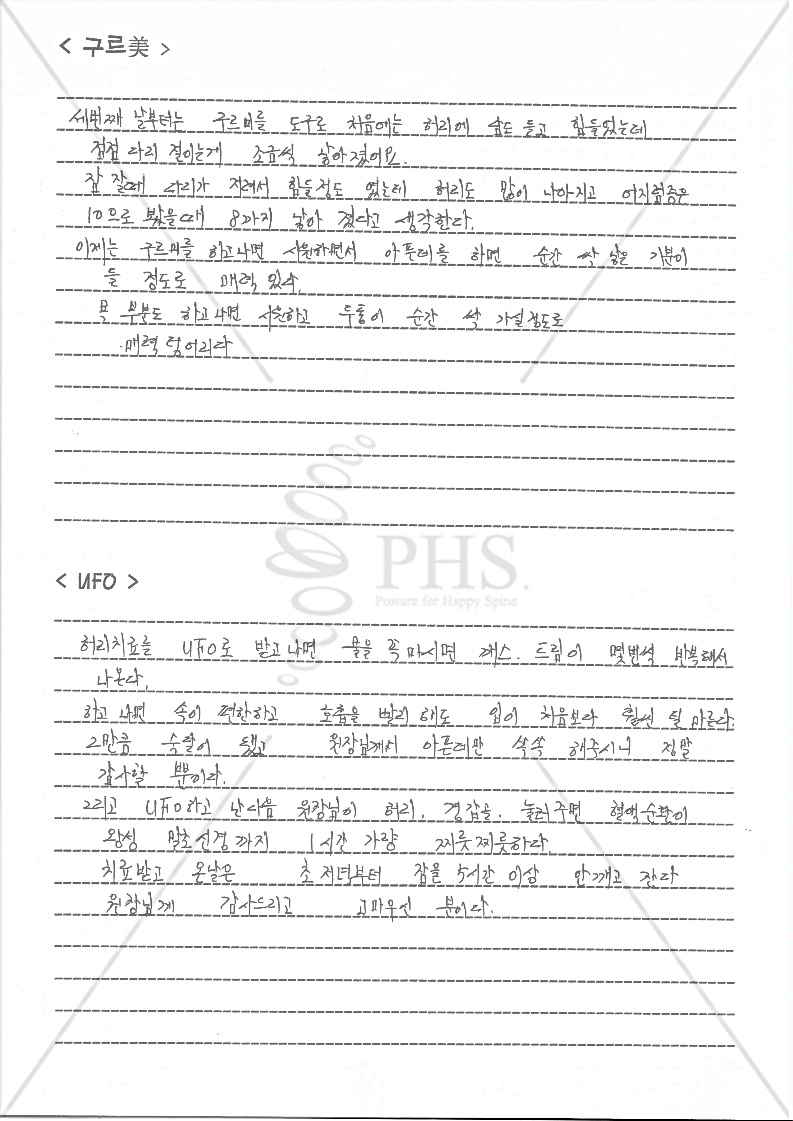 < 구르美 >
세번째 날부터는 구르미를 도구로 처음에는 허리에 숨도 들고 힘들었는데
점점 다리 절이는게 조금씩 낳아졌어요.
잠 잘때 다리가 저려서 힘들정도 였는데 허리도 많이 나아지고 어지럼증은
10으로 봤을때 8까지 낳아 졌다고 생각한다.
이제는 구르미를 하고나면 시원하면서 아픈데를 하면 순간 싹 낳은 기분이
들 정도로 매력 있다.
목 부분도 하고나면 시원하고 두통이 순간 싹 가실정도로
매력 덩어리다
PHS.
Posture for Happy Spine
< UFO >
허리치료를 UFO로 받고나면 물을 꼭 마시면 깨스. 트림이 몇번씩 반복해서
나온다.
하고 나면 속이 편안하고 호흡을 빨리 해도 입이 처음보다 훨씬 덜 마른다.
그만큼 숙달이 됐고 원장님께서 아픈데만 쏙쏙 해주시니 정말
감사할 뿐이다.
그리고 UFO하고 난다음 원장님이 허리, 경갑골. 눌러주면 혈액순환이
왕성 말초신경까지 1시간 가량 찌릿찌릿하다.
치료받고 온날은 초저녁부터 잠을 5시간 이상 안깨고 잔다
원장님께 감사드리고 고마우신 분이다.